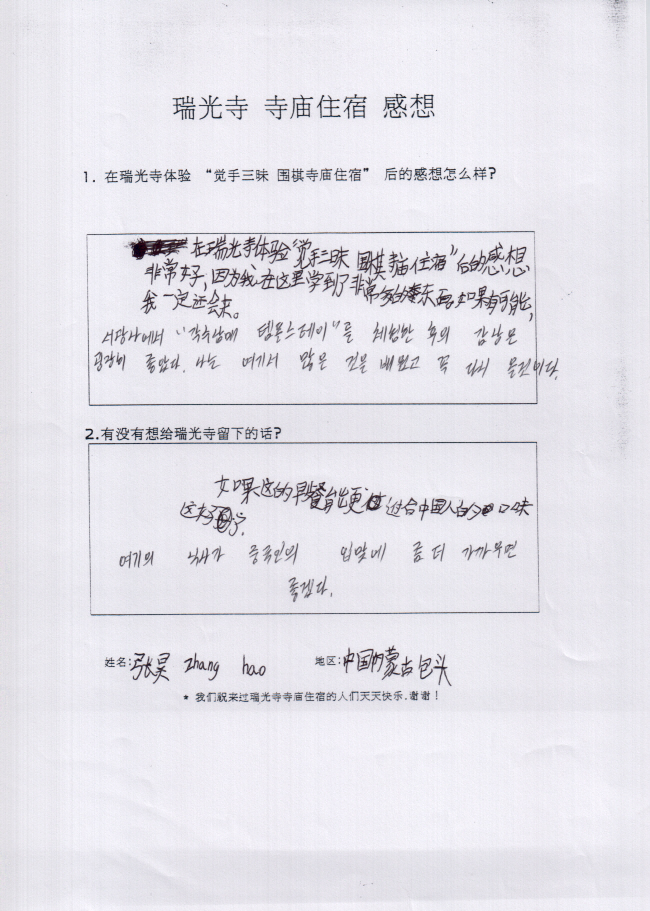 瑞光寺 寺庙住宿 感想
1. 在瑞光寺体验 “觉手三昧 围棋寺庙住宿” 后的感想怎么样?
在瑞光寺体验“觉手三昧 围棋寺庙住宿”后的感想
非常好,因为我在这里学到了非常多的东西,如果有可能,
我一定还会来。
서광사에서 “각수삼매 템플스테이”를 체험한 후의 감상은
굉장히 좋았다. 나는 여기서 많은 것을 배웠고 꼭 다시 올것이다.
2.有没有想给瑞光寺留下的话?
如果这的早餐能更 适合中国人的 口味
这好了.
여기의 식사가 중국인의 입맛에 좀 더 가까우면
좋겠다.
姓名:张昊 zhang hao 地区:中国内蒙古包头
* 我们祝来过瑞光寺寺庙住宿的人们天天快乐,谢谢!